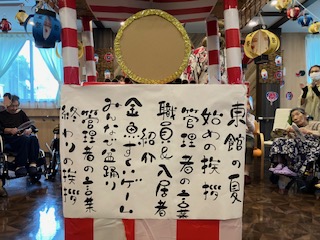 東館の夏
始めの挨拶
管理者の言葉
職員と入居者
紹介
金魚すくいゲーム
おんなで盆踊り
管理者の言葉
終わりの挨拶